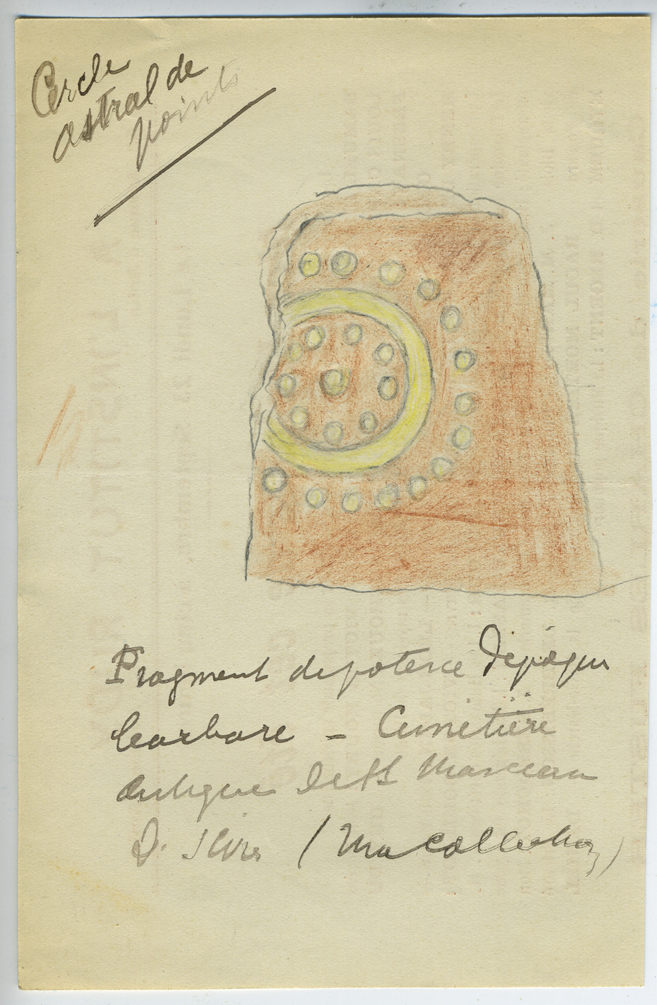 Cercle
astral de
points
Fragment de poterie d'époque
barbare – Cimetière
antique de St Marceau
(Ma Collection)